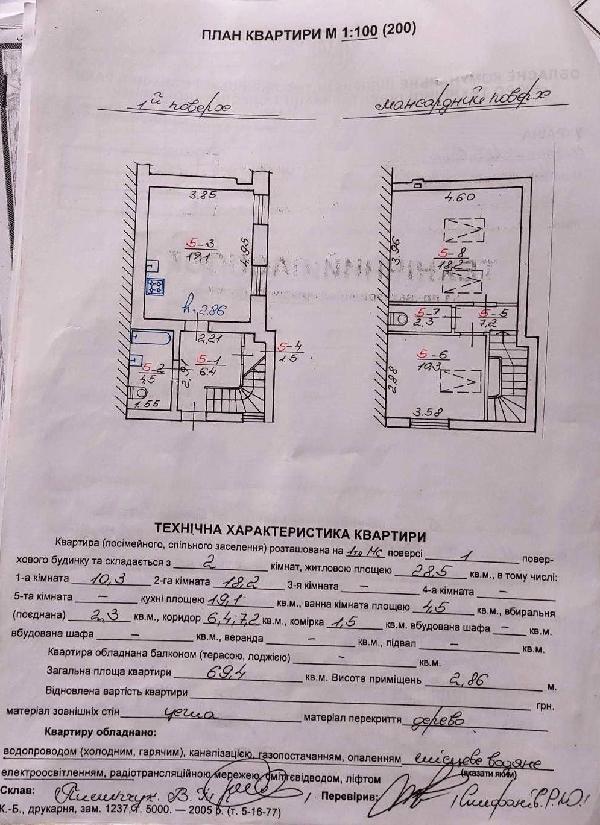 ПЛАН КВАРТИРИ М 1:100 (200)
1й поверх
мансардний поверх
3.85
5-3
19,1
4.95
h-2.86
2,21
5-1
6.4
5-4
1.5
5-2
4,5
1.55
4.60
3.96
5-8
18.2
5-7
2.3
5-5
7.2
5-6
10.3
2.88
3.58
ТЕХНІЧНА ХАРАКТЕРИСТИКА КВАРТИРИ
Квартира (посімейного, спільного заселення) розташована на 1му МС поверсі 1 повер-
хового будинку та складається з 2 кімнат, житловою площею 28.5 кв.м., в тому числі:
1-а кімната 10,3 2-га кімната 18,2 3-я кімната – 4-а кімната –
5-та кімната – кухні площею 19,1 кв.м., ванна кімната площею 4,5 кв.м., вбиральня
(поєднана) 2,3 кв.м., коридор 6,4,7,2 кв.м., комірка 1,5 кв.м. вбудована шафа – кв.м.
вбудована шафа – кв.м., веранда – кв.м., підвал – кв.м.
Квартира обладнана балконом (терасою, лоджією) – кв.м.
Загальна площа квартири 69,4 кв.м. Висота приміщень 2,86 м.
Відновлена вартість квартири грн.
матеріал зовнішніх стін цегла матеріал перекриття дерево
Квартиру обладнано:
водопроводом (холодним, гарячим), каналізацією, газопостачанням, опаленням місцеве водяне
(вказати яким)
електроосвітленням, радіотрансляційною мережею, сміттєвідводом, ліфтом
Склав: Перевірив:
К.-Б., друкарня, зам. 1237, т. 5000. — 2005 р. (т. 5-16-77)